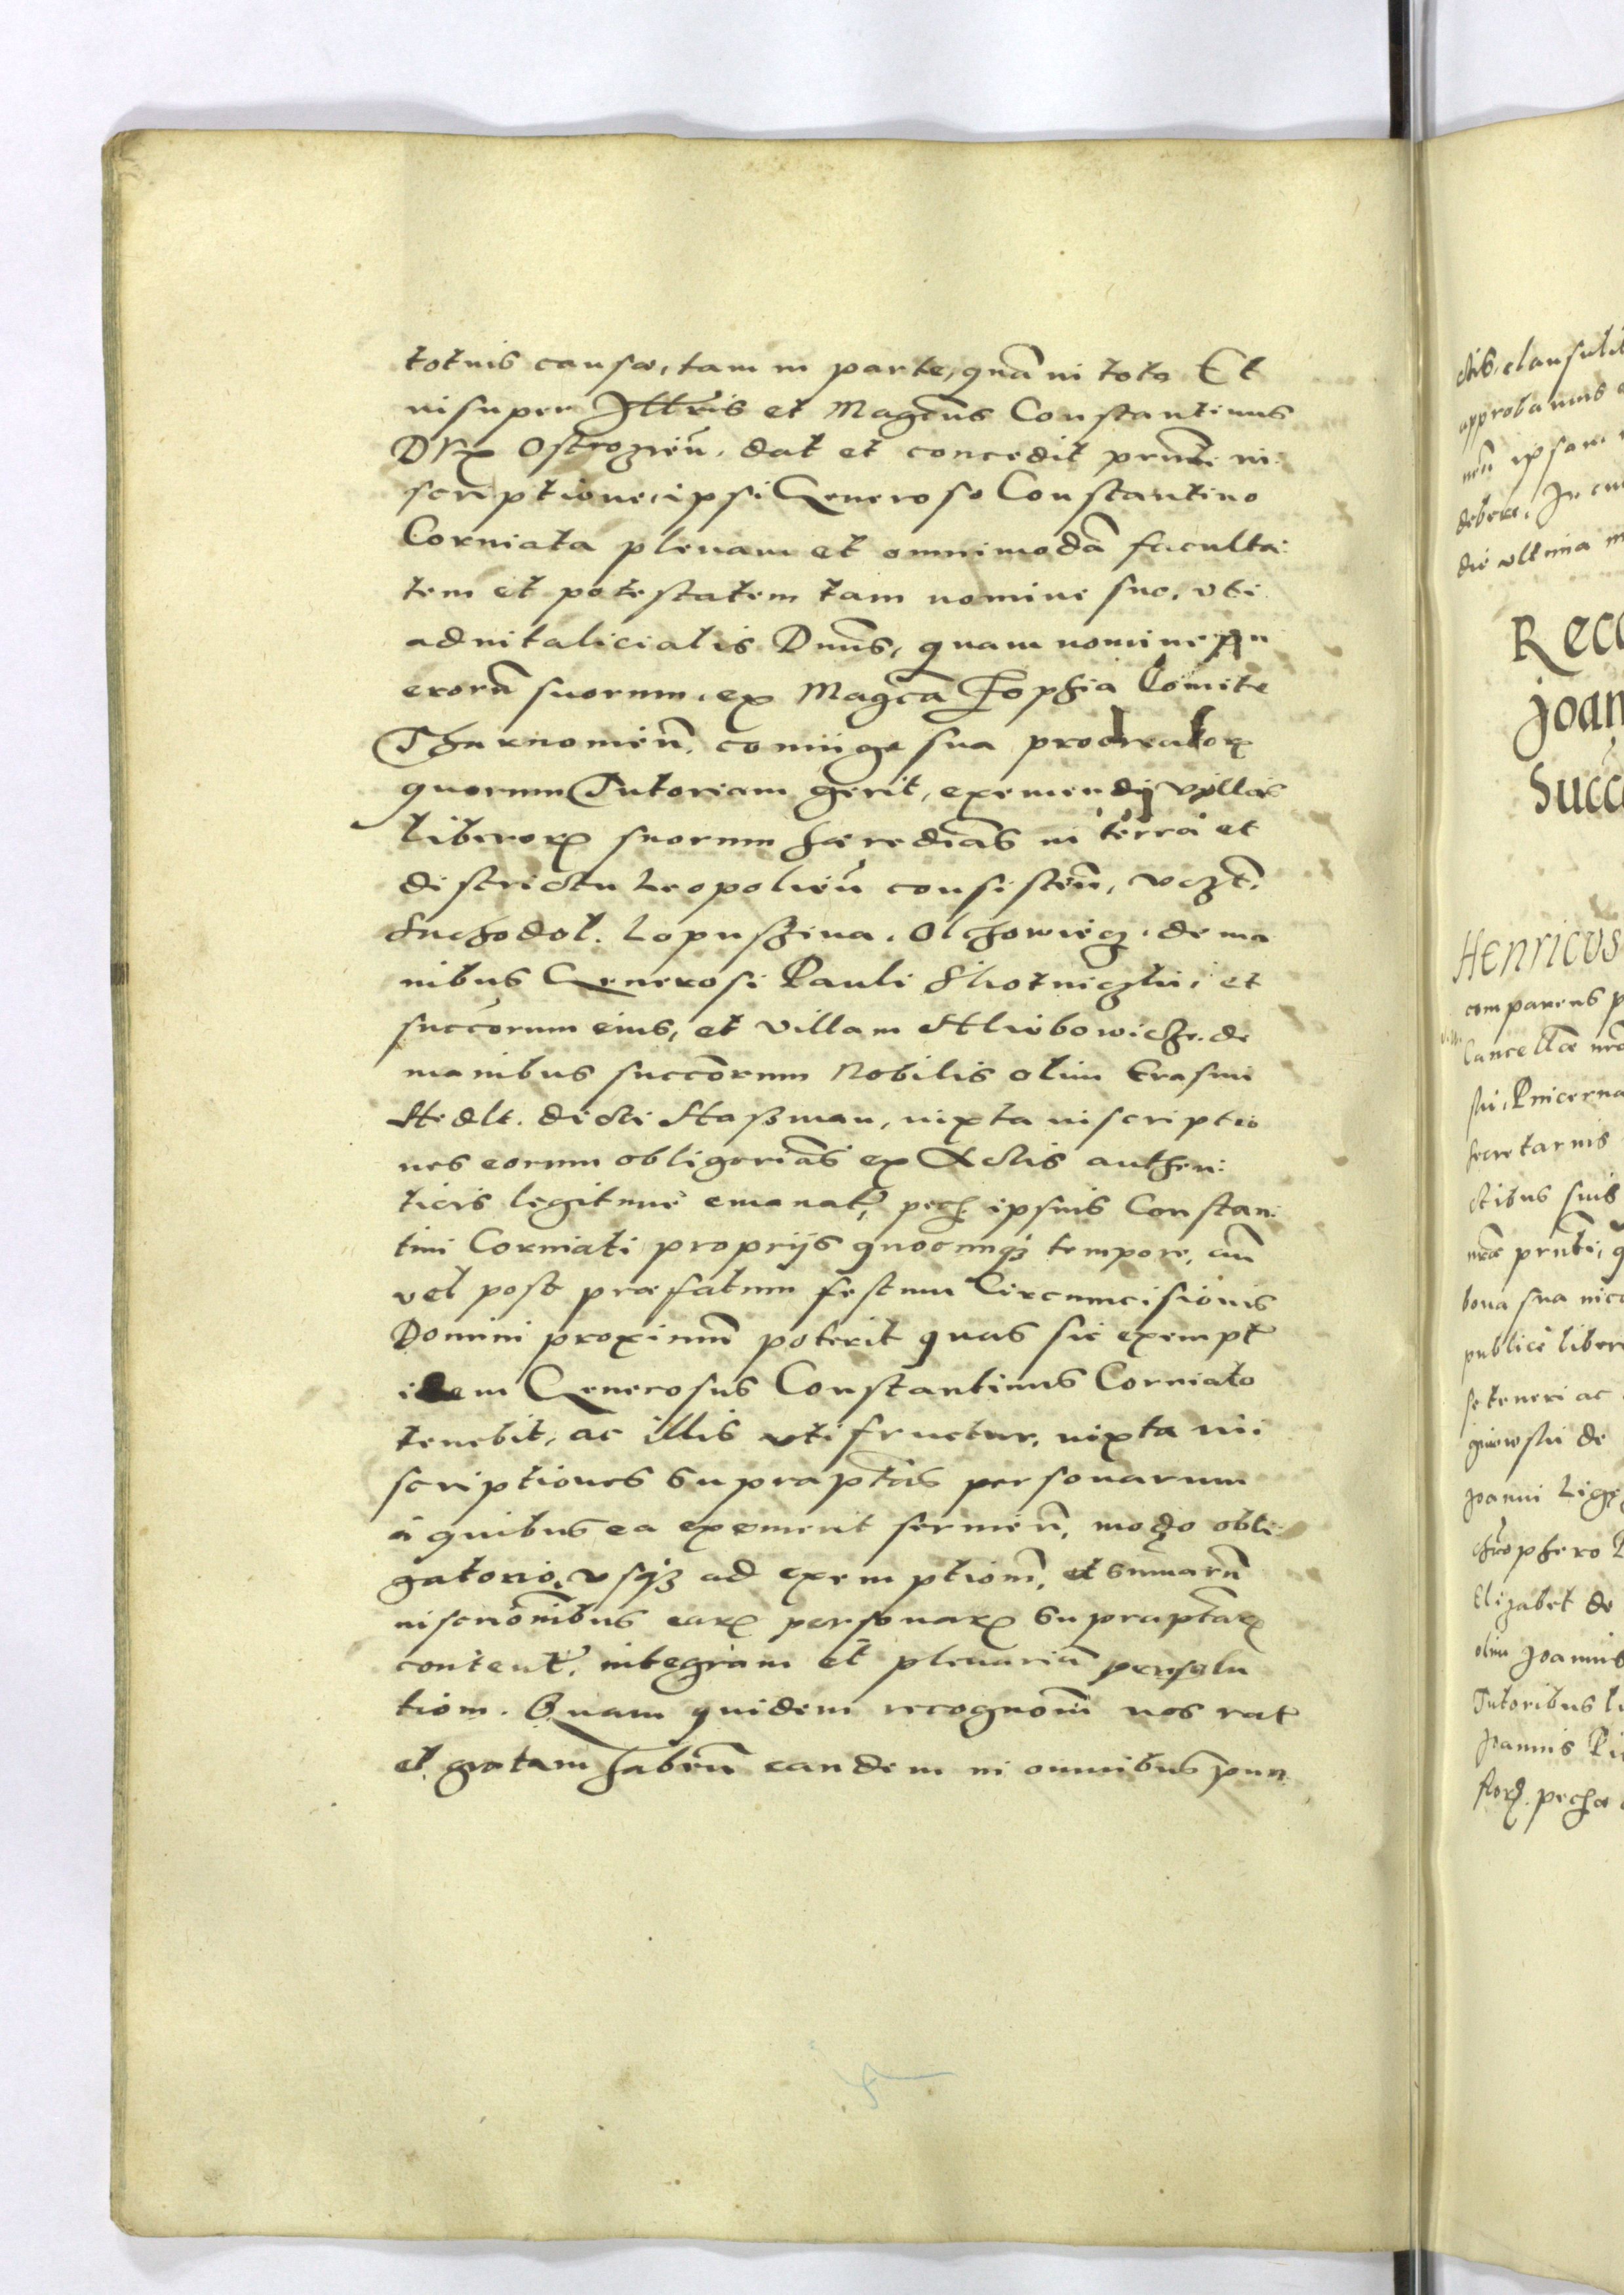 totius causæ, tam in parte, quã in toto Et
insuper Illtris et Magcus Constantinus
Dux Ostrogień. dat et concedit prnti in:
scriptione, ipsi Generoso Constantino
Corniata plenam et omnimodã faculta:
tem et potestatem tam nomine suo, vti
aduitalicialis Dnus, quam nomine pu
erorũ suorum, ex Magca Zophia Comite
Tharnowień. coniuge sua procreator
quorum Tutoriam gerit, exemendi villas
liberor suorum hæredias in terra et
districtu Leopolień consisteñ, vczt.
Suchodol. Lopuszina. Olchowiecz. de ma
nibus Generosi Pauli Sliotniczki, et
succorum eius, et villam Hliebowicze. de
manibus succorum Nobilis olim Erasmi
Hedlt. dicti Haszman, iuxta inscriptio
nes eorum obligorias ex Actis authen:
ticis legitime emanat, pech ipsius Constan:
tini Corniati proprijs quocunqz tempore, añ
vel post præfatum festum Circumcisionis
Domini proximũ poterit quas sic exempt
idem Generosus Constantinus Corniato
tenebit, ac illis utifruetur, iuxta in:
scriptiones supraptas personarum
à quibus ea exemerit sermeñ, modo obli:
gatorio, vsqz ad exemptiom, et summarũ
inscrionibus ear personar supraptar
content, integram et plenariã persolu
tiom. Quam quidem recognom nos rat
et gratam habeñ eandem in omnibus pun
ctis, clausulis
approbamus
debere. In cu
die vltima
Reco
Joan
Succ
Henricus
comparens
Cancellæ
Pincerna
secretarius
ctibus suis
bona sua
publice libere
se teneri ac
de
Joanni
Elizabet de
olim Joannis
Tutoribus
Joannis
pechæ